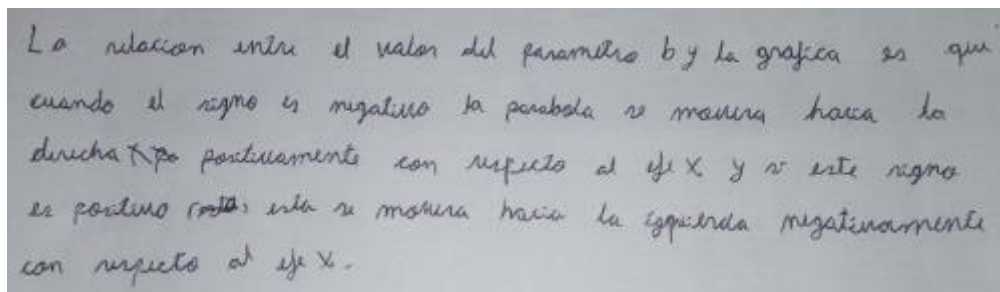 La relacion entre el valor del parametro b y la grafica es que
cuando el signo es negativo la parabola se movera hacia la
derecha positivamente con respecto al eje X y si este signo
es positivo esta se movera hacia la izquierda negativamente
con respecto al eje X.